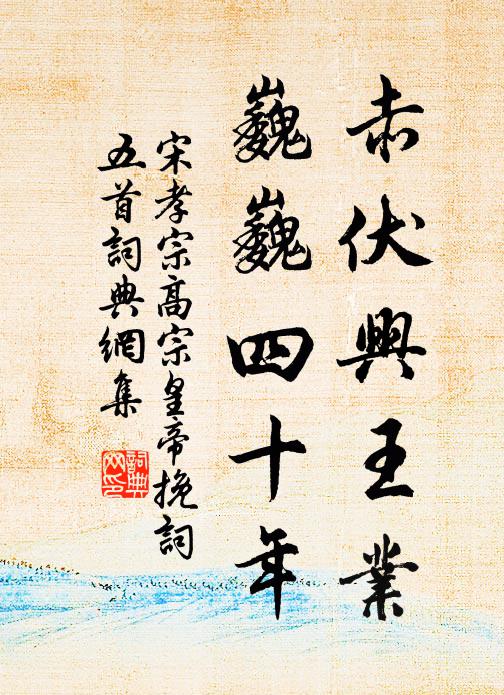 赤伏興王業
巍巍四十年
宋孝宗高宗皇帝挽詞
五首詞典網集
詞典網印